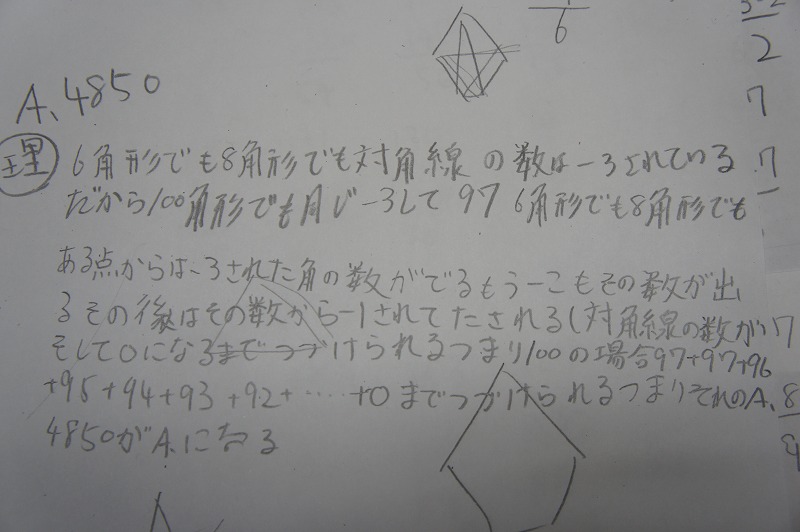 6
2
7
7
A、4850
理 6角形でも8角形でも対角線の数は-3されている
だから100角形でも同じ-3して97 6角形でも8角形でも
ある点からは、-3された角の数がでるもう一こもその数が出
るその後はその数から-1されてたされる(対角線の数が)
そして0になるまでつづけられるつまり100の場合97+97+96
+95+94+93+92+……+0までつづけられるつまりそれのA、
4850がA、になる
8